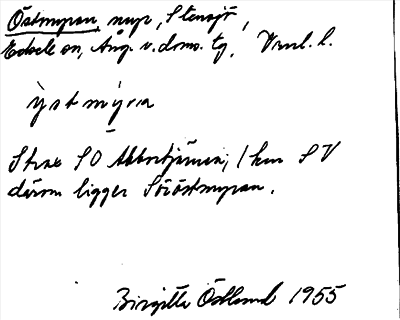 Östmyran, myr, Stensjö,
Edsele sn, Ång. v. dms. tg,
ỳstmýra
Strax SO Abborrtjärnen, 1 km SV
därom ligger Söröstmyran.
Birgitta Östlund 1955